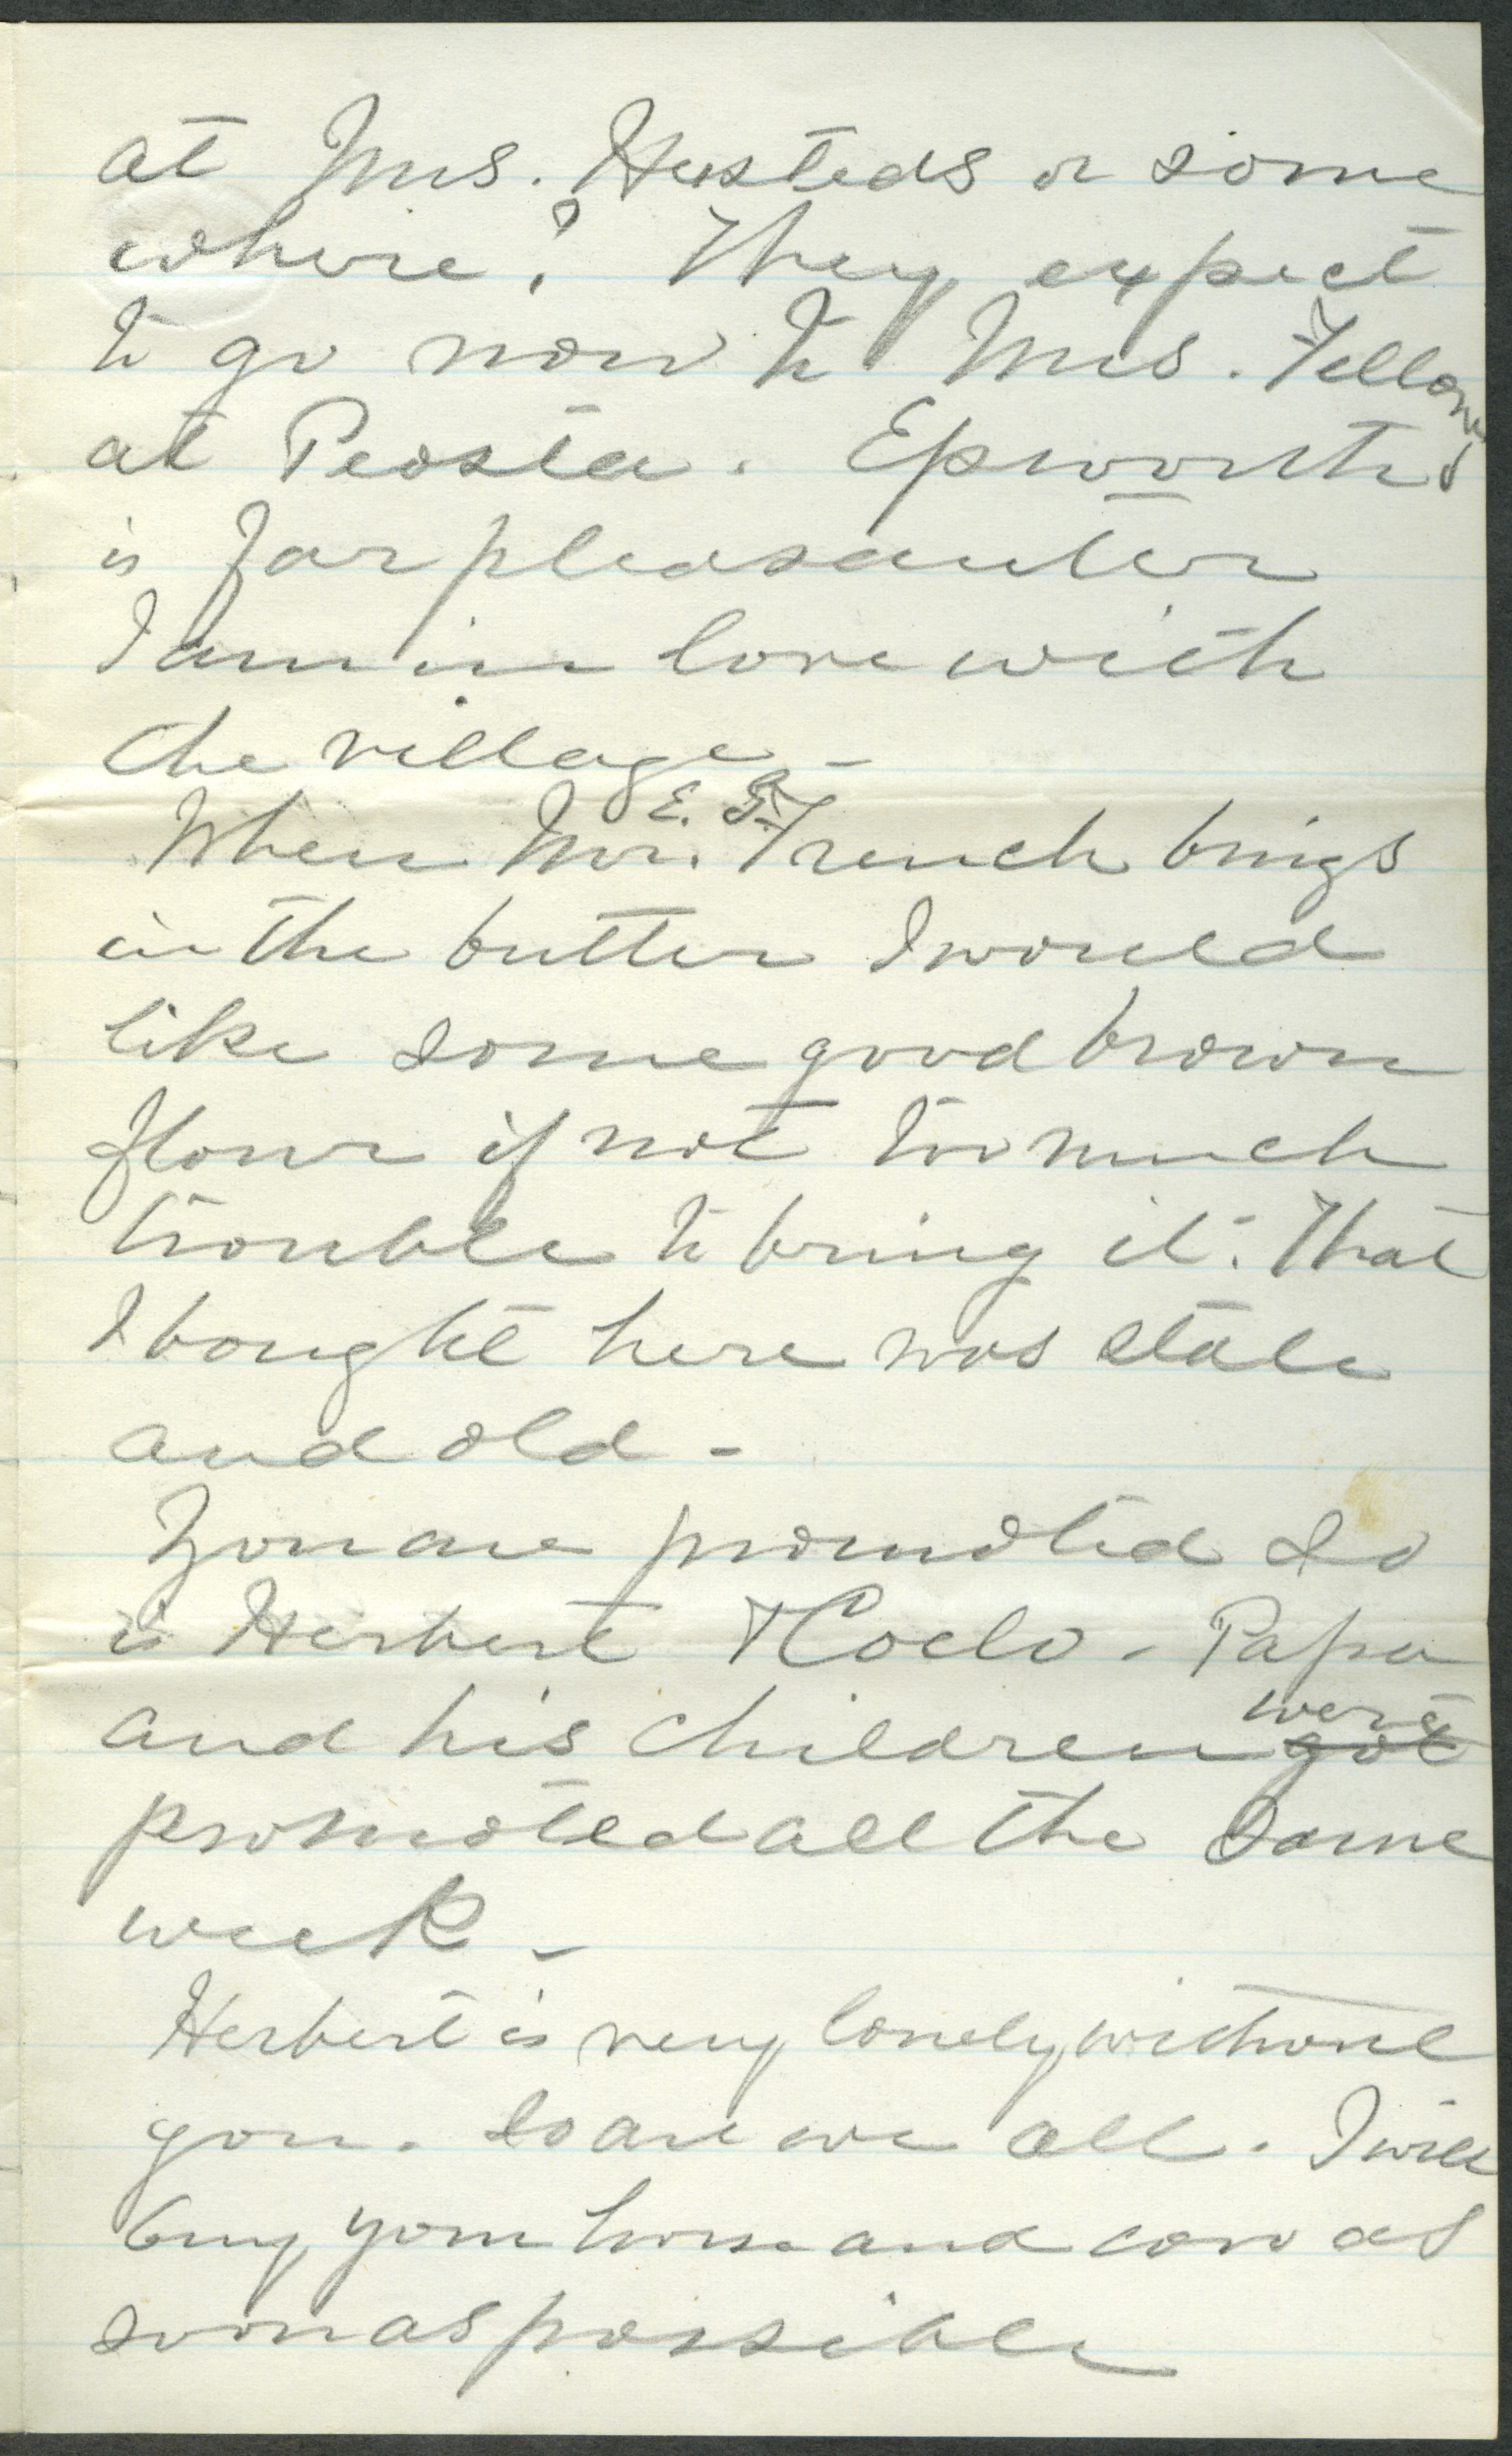 at Mrs. Husteds or some
where? They expect
to go now to Mrs. Fellows
at Peosta. Epworth
is far pleasanter
I am in love with
the village -
When Mr. E. French brings
in the butter I would
like some good brown
flour if not too much
trouble to bring it. That
I bought here was stale
and old -
You are promoted so
is Herbert - Papa
and his children were got
promoted all the same
week -
Herbert is very lonely without
you. So are we all. I will
buy your horse and cow as
soon as possible